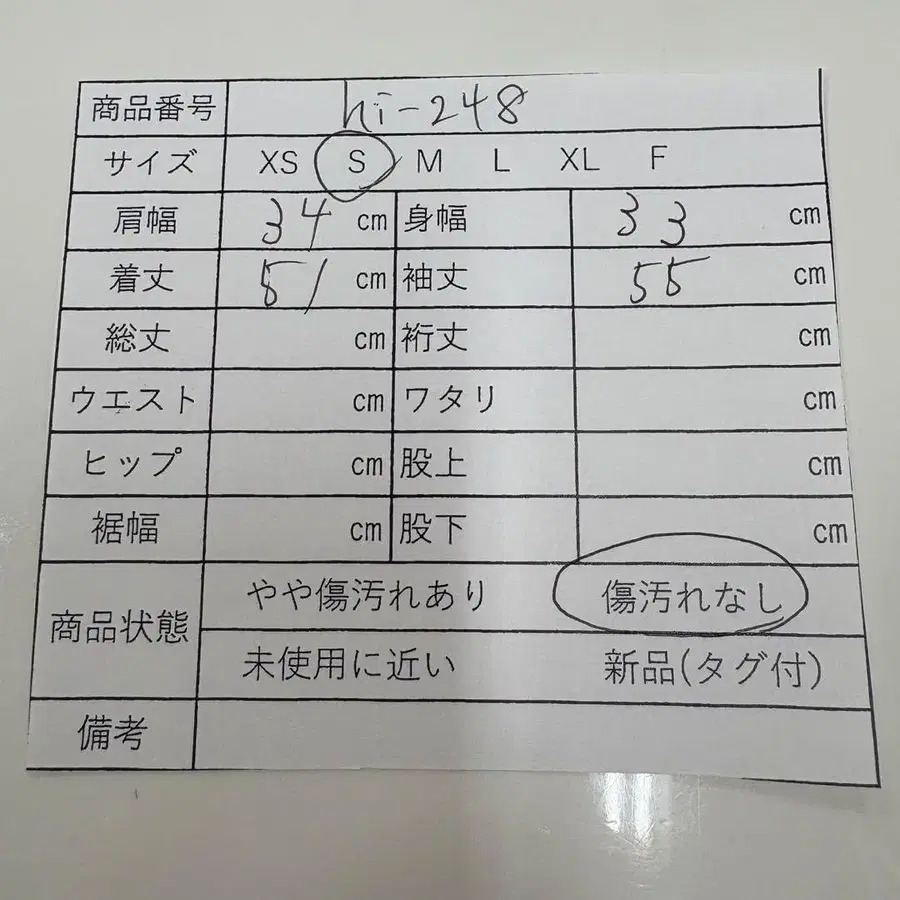 商品番号 hi-248
サイズ XS S M L XL F
肩幅 34 cm 身幅 33 cm
着丈 51 cm 袖丈 55 cm
総丈 cm 裄丈 cm
ウエスト cm ワタリ cm
ヒップ cm 股上 cm
裾幅 cm 股下 cm
商品状態 やや傷汚れあり 傷汚れなし
未使用に近い 新品(タグ付)
備考